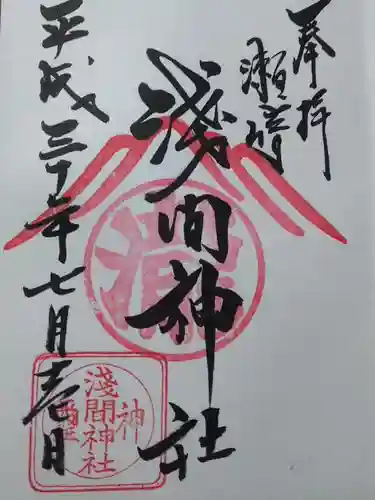 奉拝
瀬崎
淺間神社
平成三十年七月壱日
淺間神社